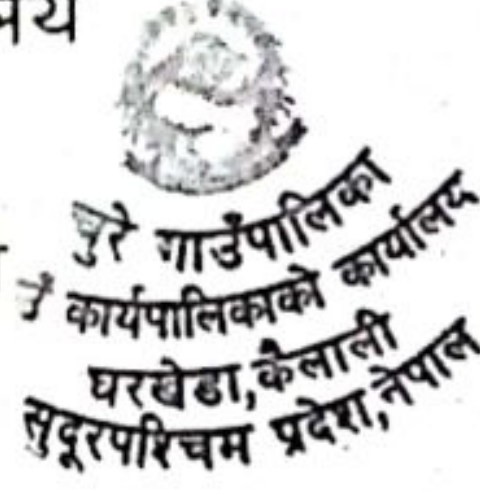 चुरे गाउँपालिका
कार्यपालिकाको कार्यालय
घरखेडा,कैलाली
सुदूरपश्चिम प्रदेश,नेपाल